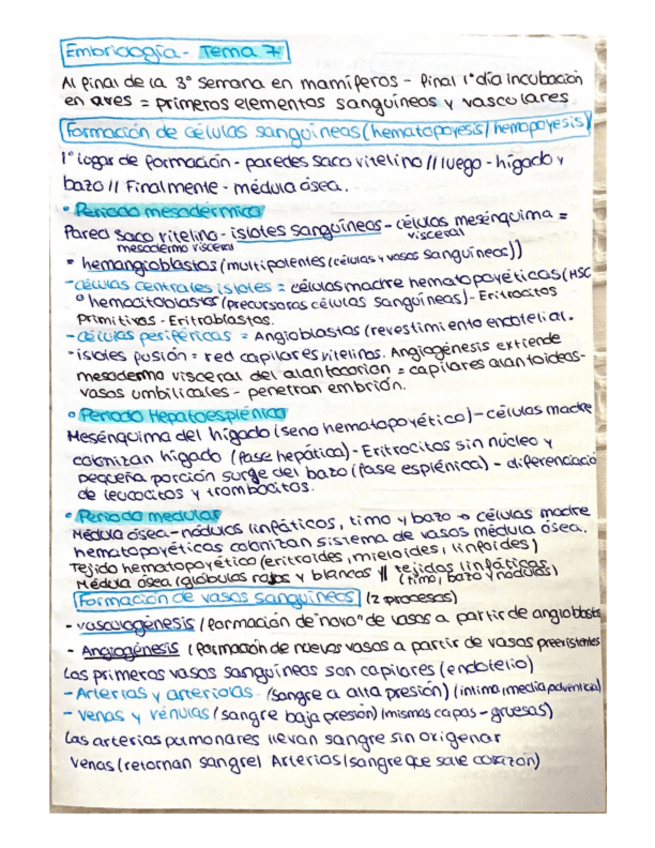 Embriología - Tema 7
Al final de la 3ª semana en mamíferos - final 1º día incubación
en aves = primeros elementos sanguíneos y vasculares.
Formación de células sanguíneas (hematopoyesis/hemopoyesis)
1º lugar de formación - paredes saco vitelino // luego - hígado y
bazo // Finalmente - médula ósea.
• Periodo mesodérmico
Pared saco vitelino - islotes sanguíneos - células mesénquima =
mesodermo visceral visceral
= hemangioblastos (multipotentes (células y vasos sanguíneos))
- células centrales islotes = células madre hematopoyéticas (HSC
º hemocitoblastos (precursoras células sanguíneas) - Eritrocitos
primitivos - Eritroblastos.
- células periféricas = Angioblastos (revestimiento endotelial.
- islotes fusión = red capilares vitelinos. Angiogénesis extiende
mesodermo visceral del alantocorion = capilares alantoideas-
vasos umbilicales - penetran embrión.
• Periodo Hepatoesplénico
Mesénquima del hígado (seno hematopoyético) - células madre
colonizan hígado (fase hepática) - Eritrocitos sin núcleo y
pequeña porción surge del bazo (fase esplénica) - diferenciació
de leucocitos y trombocitos.
• Periodo medular
Médula ósea - nódulos linfáticos, timo y bazo → células madre
hematopoyéticas colonizan sistema de vasos médula ósea.
Tejido hematopoyético (eritroides, mieloides, linfoides)
Médula ósea (glóbulos rojos y blancos // tejidos linfáticos
(timo, bazo y nódulos)
Formación de vasos sanguíneos (2 procesos)
- vasculogénesis (formación de "novo" de vasos a partir de angioblastos
- Angiogénesis (formación de nuevos vasos a partir de vasos preexistentes
Los primeros vasos sanguíneos son capilares (endotelio)
- Arterias y arteriolas - (sangre a alta presión) (íntima, media, adventicia)
- venas y vénulas (sangre baja presión) (mismas capas - gruesas)
Las arterias pulmonares llevan sangre sin oxigenar
Venas (retornan sangre) Arterias (sangre que sale corazón)